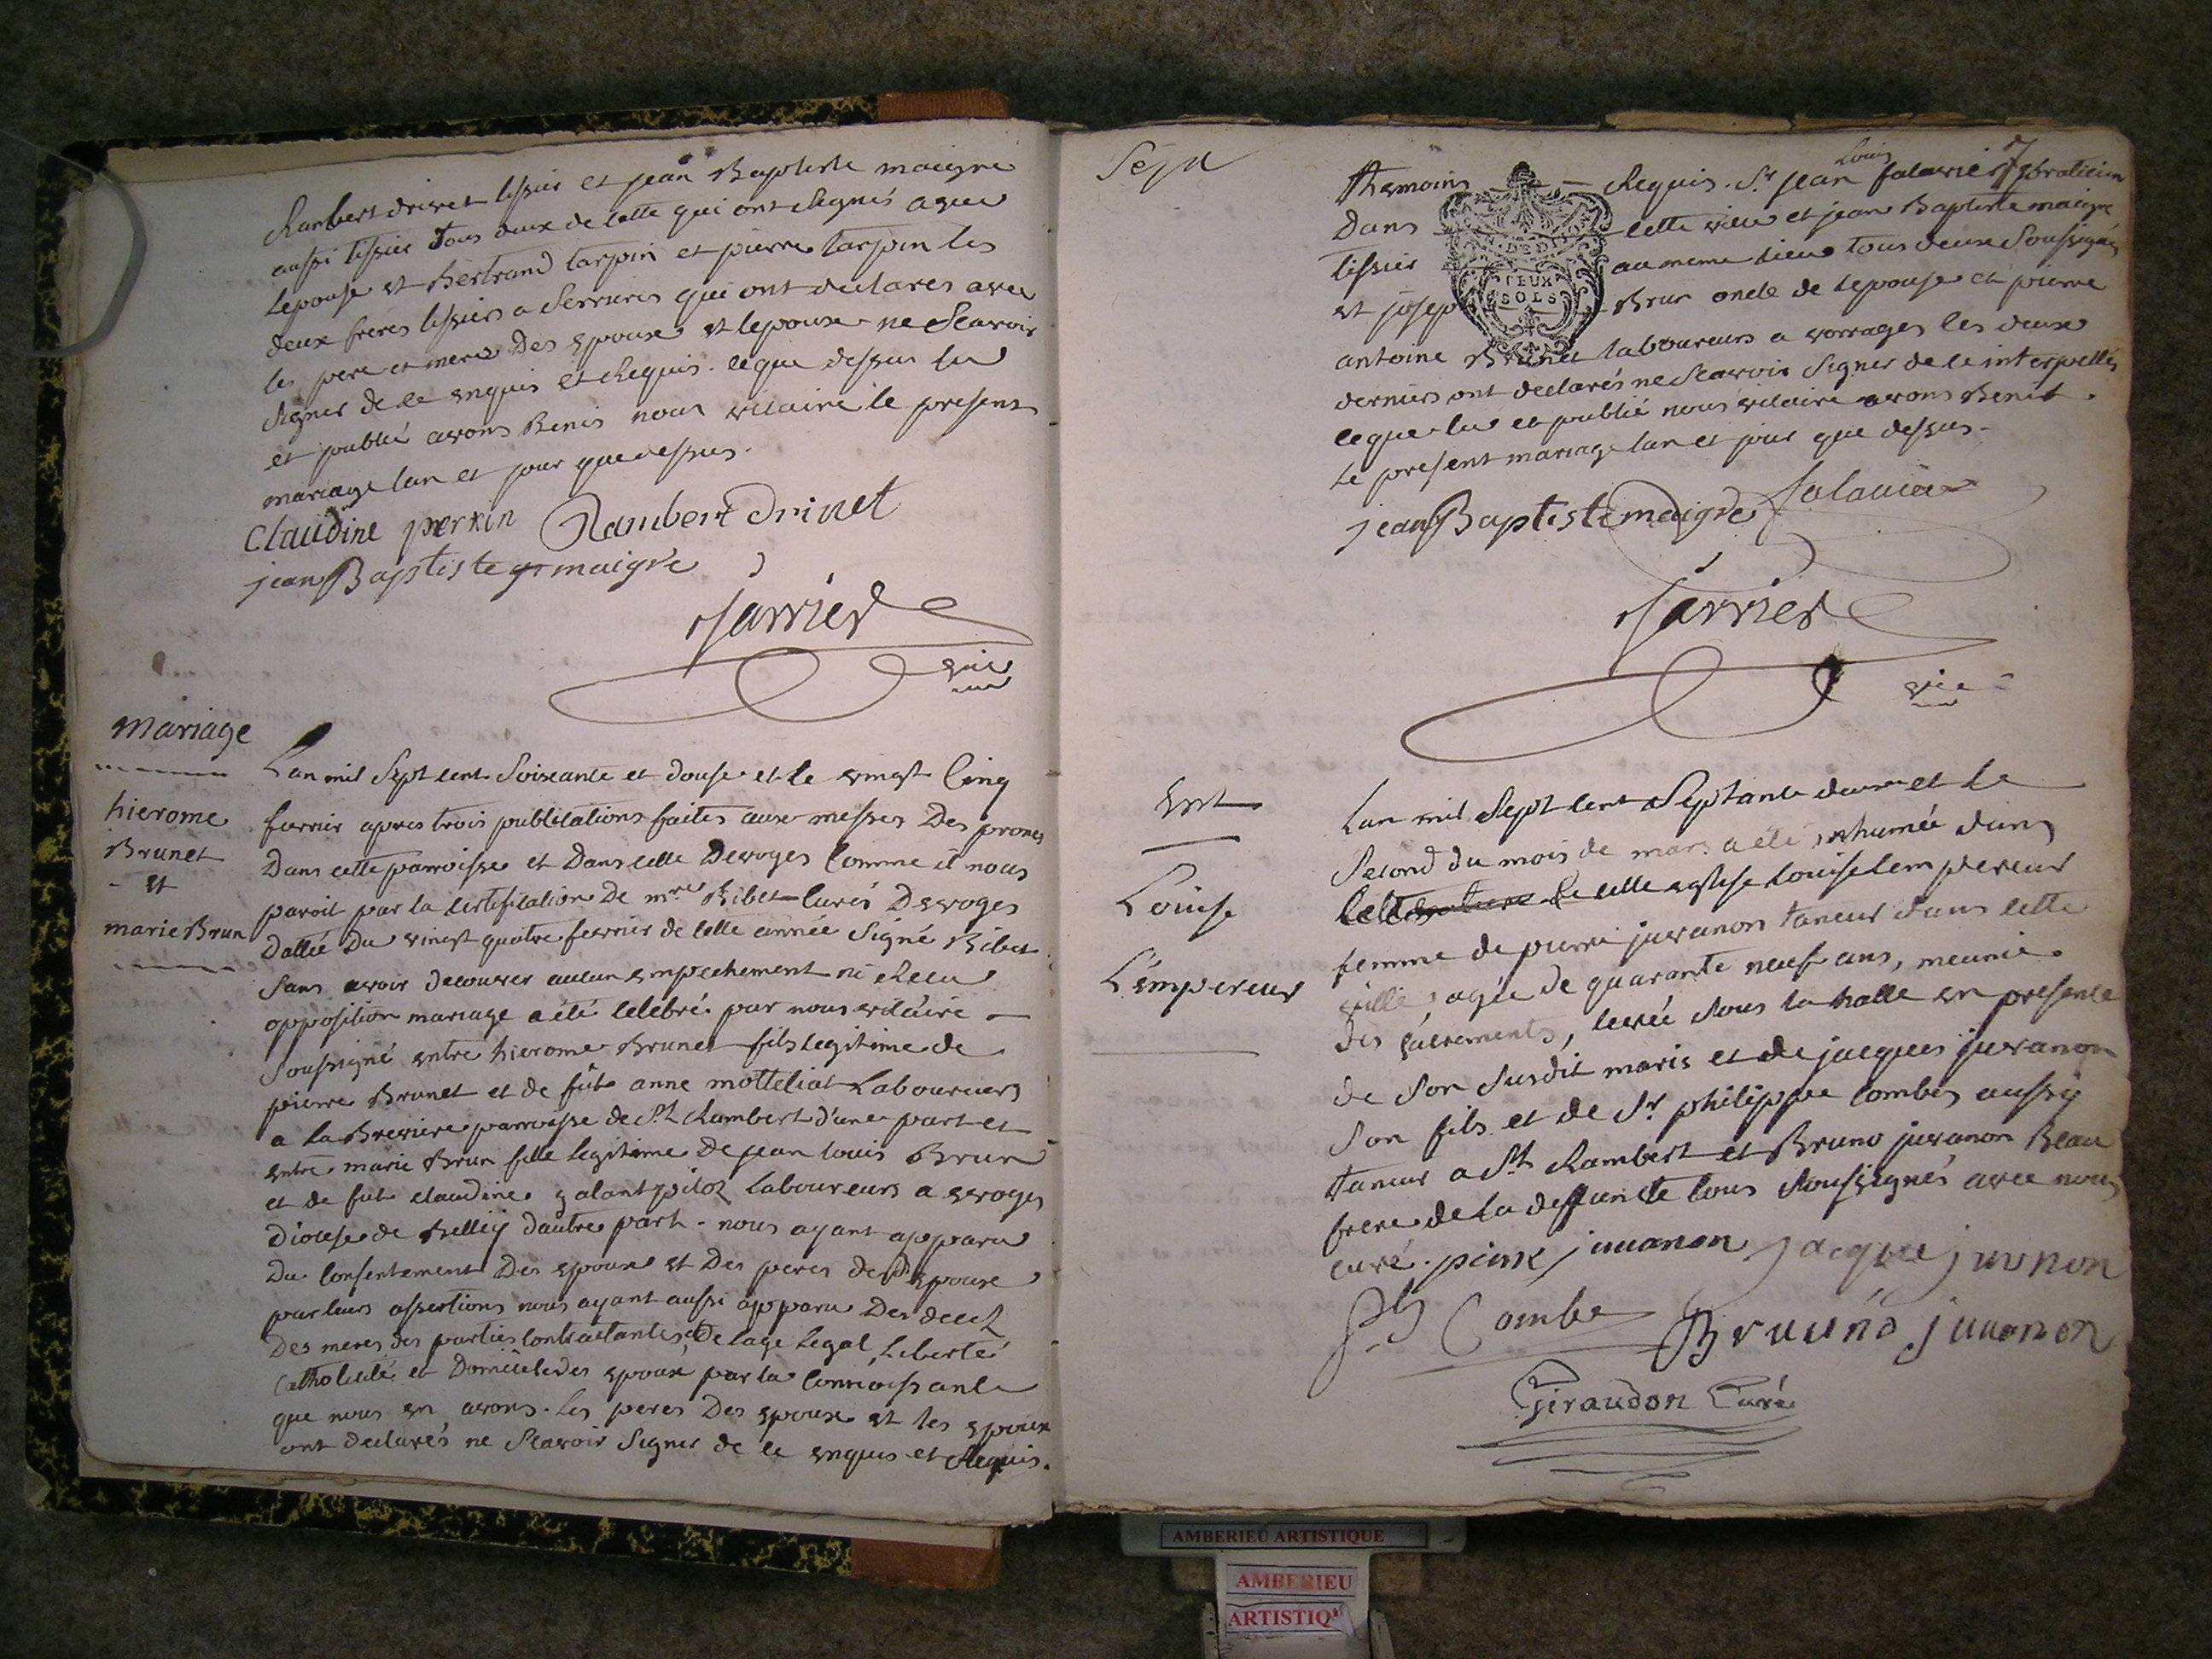 Rambert drivet tissier et jean Baptiste maigre
aussi tissier tous deux de cette qui ont signés avec
lepouse et Bertrand tarpin et pierre tarpin les
deux freres tissiers a Serrieres qui ont declarés avec
les pere et meres des epoux et lepoux ne Scavoir
signer de ce enquis et Requis. ce que dessus lu
et publié avons Benis nous vicaire le present
mariage lan et jour que dessus.
Claudine perrin Rambert Drivet
jean Baptiste maigre
Jarrier
vic
mariage
hierome
Brunet
et
marie Brun
Lan mil Sept cent Soixante et douse et le vingt Cinq
fevrier apres trois publications faites aux messes Des prones
Dans cette parroisse et Dans celle Devoges Comme il nous
paroit par la certification De mre Ribet Curés Devoges
Dattée Du vingt quatre fevrier de cette année Signé Ribet
Sans avoir decouver aucun empechement ni Receu
opposition mariage a été celebré par nous vicaire
Soussigné entre hierome Brunet fils legitime de
pierre Brunet et de füe anne motteliat Laboureurs
a la Breviere parroisse de St Rambert d'une part et
entre marie Brun fille legitime De jean Louis Brun
et de fue claudine galant pitoz Laboureurs a evoges
Diocese de Belley dautre part. nous ayant apparu
Du Consentement Des epoux et Des peres des epoux
par leurs assertions nous ayant aussi apparu Des decez
Des meres des parties Contractantes, De lage Legal, Liberté
Catholicité et Domicile des epoux par la Connoissance
que nous en avons. Les peres Des epoux et les epoux
ont declarés ne Scavoir Signer de ce enquis et Requis.
Sept
7
Louis
Themoins Requis. Sr jean falavier praticien
Dans cette ville et jean Baptiste maigre
tissier au meme lieu tous deux Soussignés
et joseph Brun oncle de lepouse et pierre
antoine Brunet laboureurs a vorrages les deux
derniers ont declarés ne Scavoir Signer de ce interpellés
ce que lu et publié nous vicaire avons Benit
le present mariage lan et jour que dessus.
DEUX
SOLS
jean Baptiste maigre falavier
Jarrier
vic
Ent
Louise
L'empereur
Lan mil Sept cent Septante deux et le
Second du mois de mars a été inhumée dans
cette Eglise Louise Lempereur
femme de pierre juvanon taneur dans cette
ville, agée de quarante neuf ans, meunie
des Sacrements, levée Sous la halle en presence
de Son Susdit maris et de jacques juvanon
Son fils et de Sr philippe Combes aussy
taneur a St Rambert et Bruno juvanon Beau
frere de la deffuncte tous Soussignés avec nous
curé. piere juuanon jacque juvnon
Ph Combe Bruuno juuanon
Giraudon Curé
AMBERIEU ARTISTIQUE
AMBERIEU
ARTISTIQ